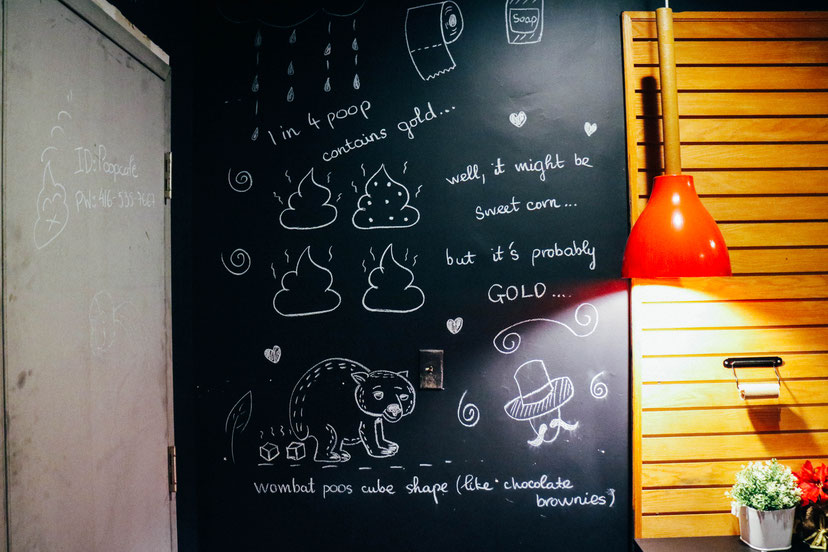 Soap
1 in 4 poop
contains gold...
well, it might be
sweet corn...
but it's probably
GOLD....
ID: Poopcafe
wombat poos cube shape (like chocolate
brownies)